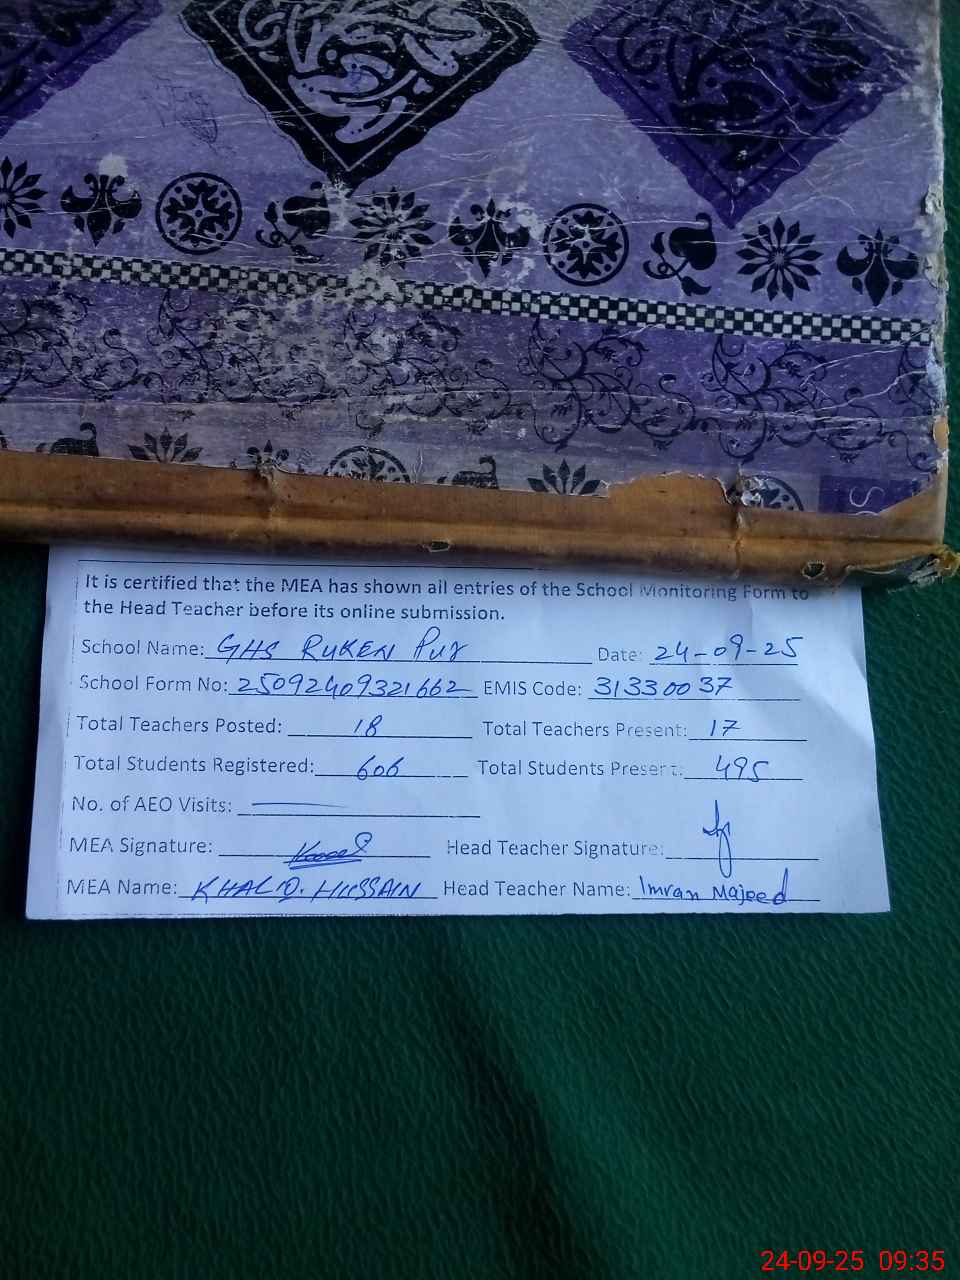 It is certified that the MEA has shown all entries of the School Monitoring Form to
the Head Teacher before its online submission.
School Name: GHS RUKEN PUR Date: 24-09-25
School Form No: 25092409321662 EMIS Code: 31330037
Total Teachers Posted: 18 Total Teachers Present: 17
Total Students Registered: 606 Total Students Present: 495
No. of AEO Visits:
MEA Signature: Head Teacher Signature:
MEA Name: KHALID. HUSSAIN Head Teacher Name: Imran Majeed
24-09-25 09:35